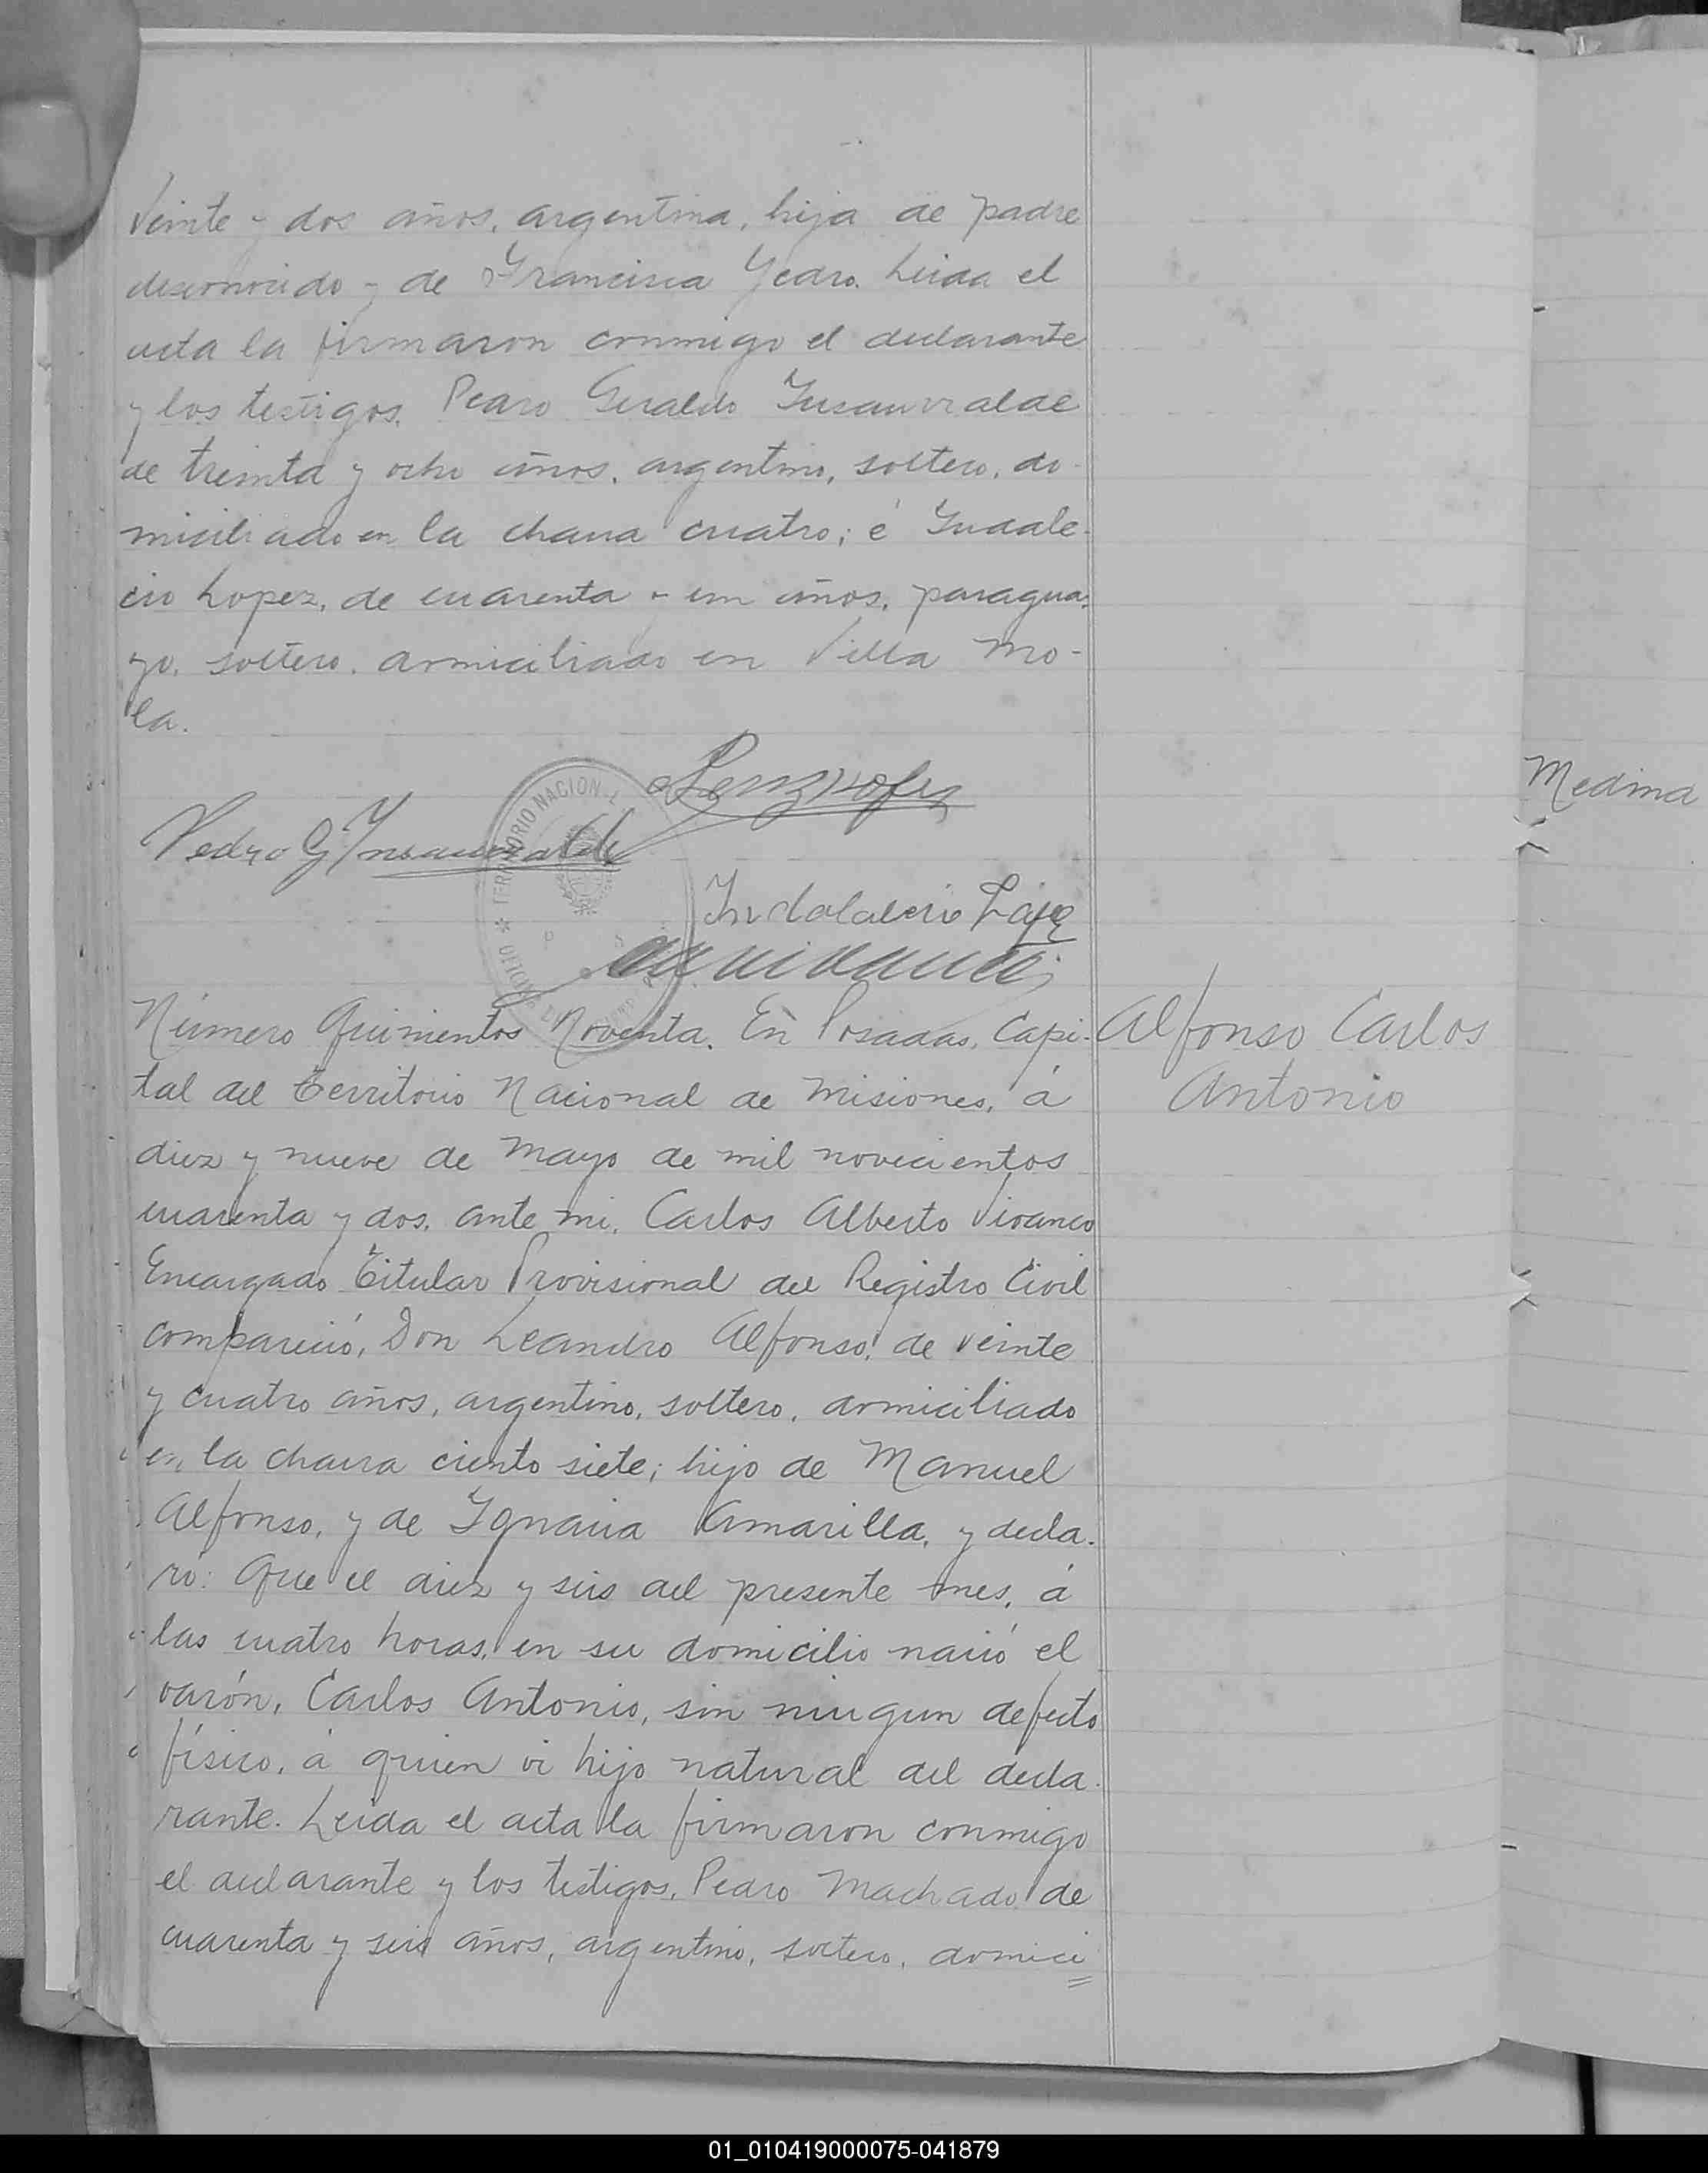 Veinte y dos años, argentina, hija de padre
desconocido y de Francisca Yedro. Leida el
acta la firmaron conmigo el declarante
y los testigos, Pedro Geraldo Insaurralde
de treinta y ocho años, argentino, soltero, do-
miciliado en la chacra cuatro; é Indale-
cio Lopez, de cuarenta y un años, paragua-
yo, soltero, domiciliado en Villa Mo-
la.
Pedro G Insaurralde
TERRITORIO NACIONAL
Indalecio Lope
Número Quinientos Noventa. En Posadas, Capi-
tal del Territorio Nacional de Misiones, á
diez y nueve de Mayo de mil novecientos
cuarenta y dos, ante mi, Carlos Alberto Vivanco
Encargado Titular Provisional del Registro Civil
compareció, Don Leandro Alfonso, de veinte
y cuatro años, argentino, soltero, domiciliado
en la chacra ciento siete; hijo de Manuel
Alfonso, y de Ignacia Amarilla, y decla-
ró: Que el diez y seis del presente mes, á
las cuatro horas, en su domicilio nació el
varón, Carlos Antonio, sin ningun defecto
físico, á quien vi hijo natural del decla-
rante. Leida el acta la firmaron conmigo
el declarante y los testigos, Pedro Machado, de
cuarenta y seis años, argentino, soltero, domici
Alfonso Carlos
Antonio
Medina
01_010419000075-041879